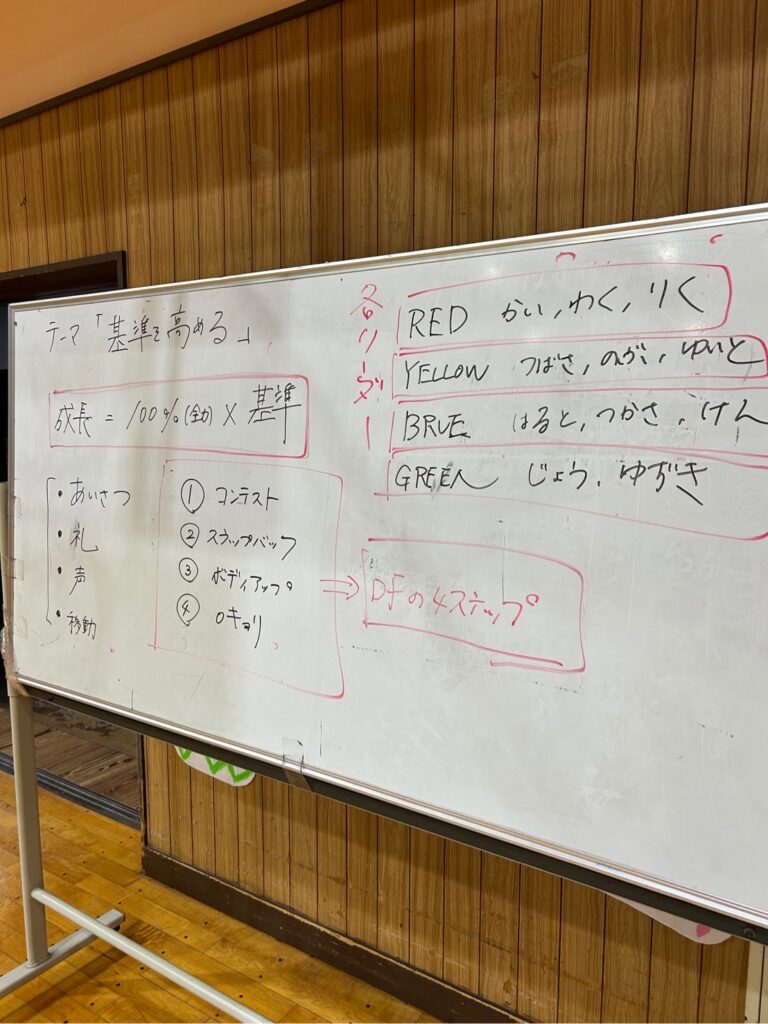 テーマ「基準を高める」
成長 = 100%(全力) × 基準
・あいさつ
・礼
・声
・移動
① コンテスト
② スラップバック
③ ボディアップ
④ 0キョリ
⇒ DFの4ステップ
各リーダー
RED かい, わく, りく
YELLOW つばさ, のが, ゆいと
BRUE はると, つかさ, けん
GREEN じょう, ゆずき